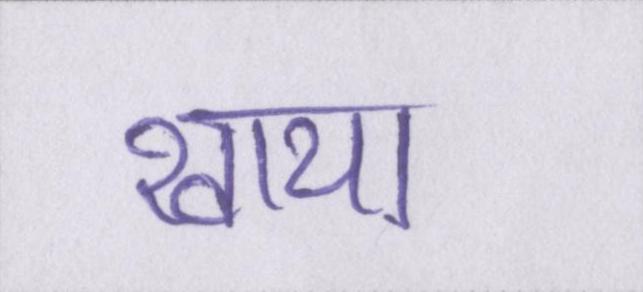 खाया